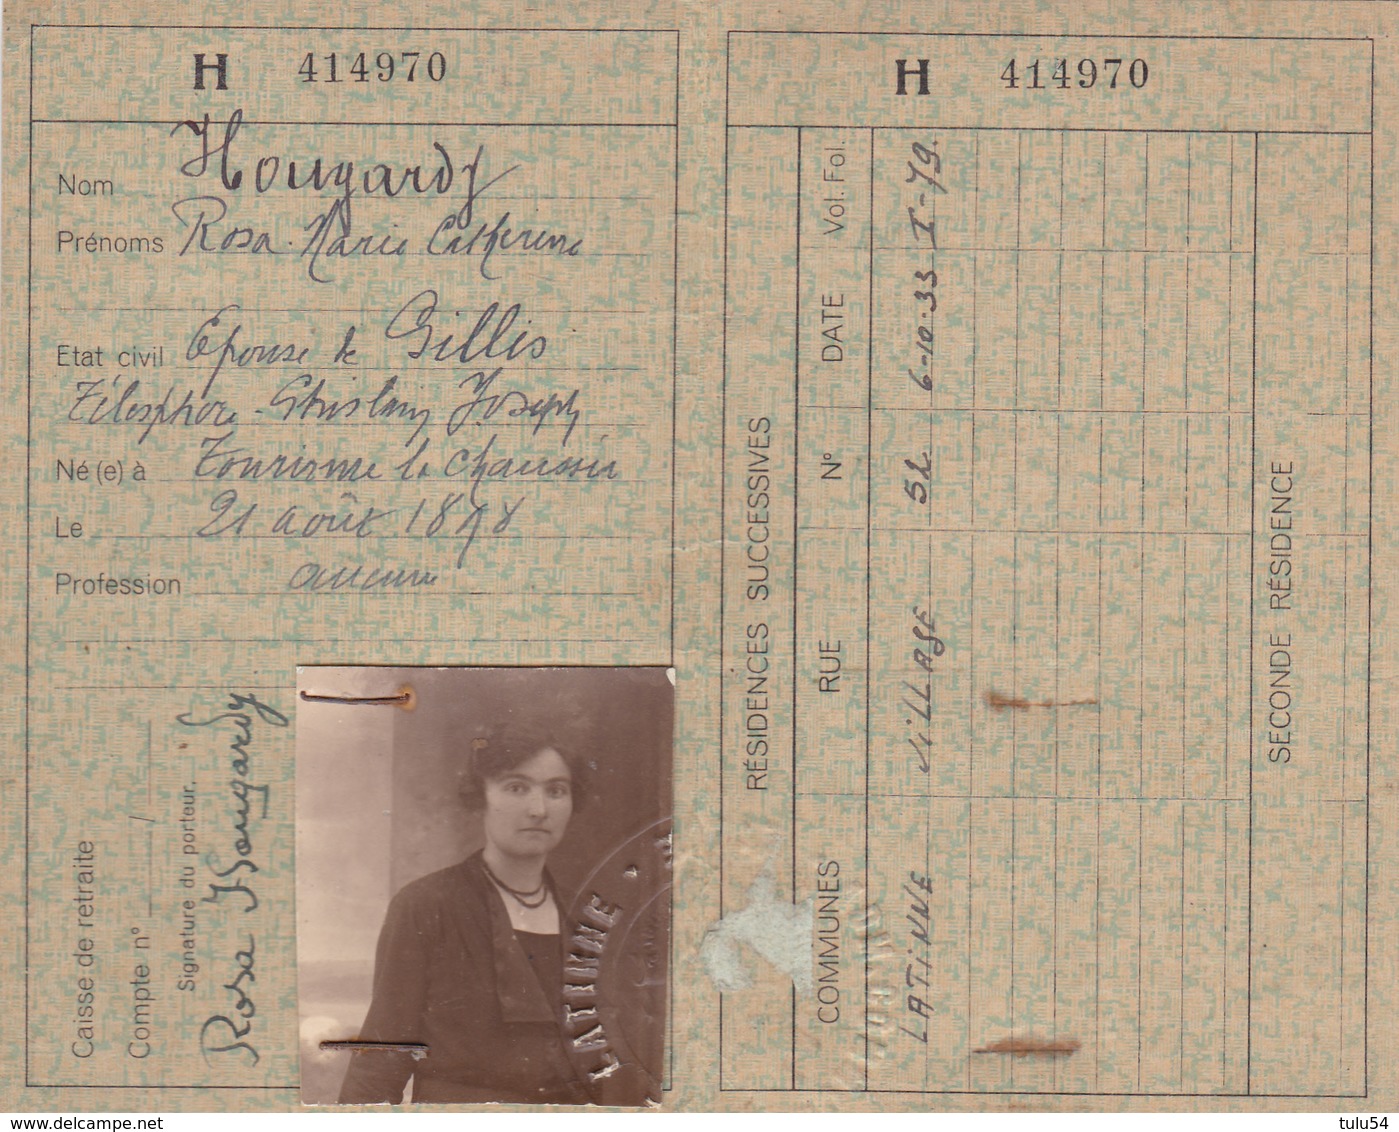 H 414970
Nom Hougardy
Prénoms Rosa Marie Catherine
Etat civil Epouse de Gillis
Télesphore - Ghislain Joseph
Né (e) à Tourinne la Chaussée
Le 21 août 1898
Profession aucune
Caisse de retraite
Compte n° /
Signature du porteur,
Rosa Hougardy
LATINNE
H 414970
RÉSIDENCES SUCCESSIVES
COMMUNES RUE N° DATE Vol. Fol.
LATINNE VILLAGE 52 6-10-33 I-79.
SECONDE RÉSIDENCE
www.delcampe.net
tulu54